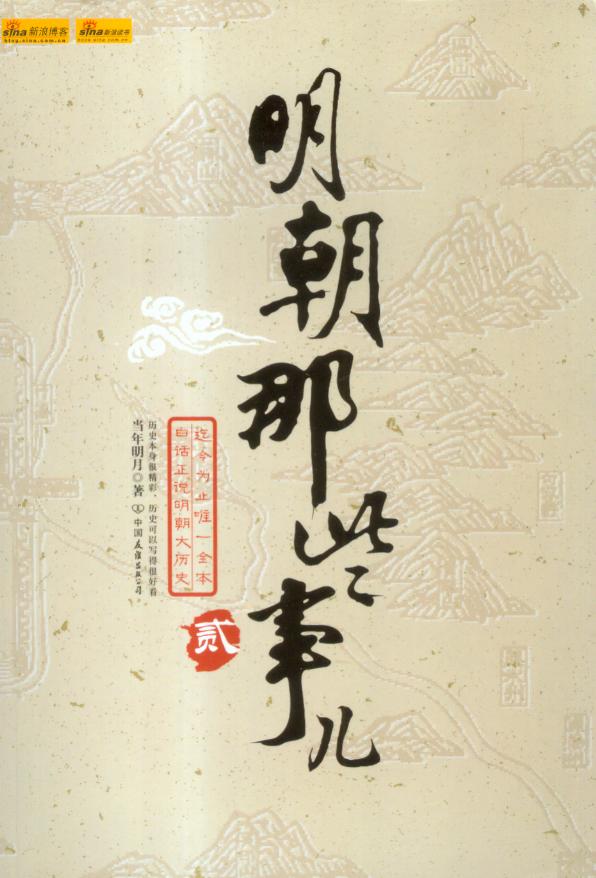 sina 新浪博客
blog.sina.com.cn
sina 新浪读书
book.sina.com.cn
明朝那些事儿
迄今为止唯一全本
白话正说明朝大历史
历史本身很精彩,历史可以写得很好看
当年明月◎著
中国友谊出版公司
贰